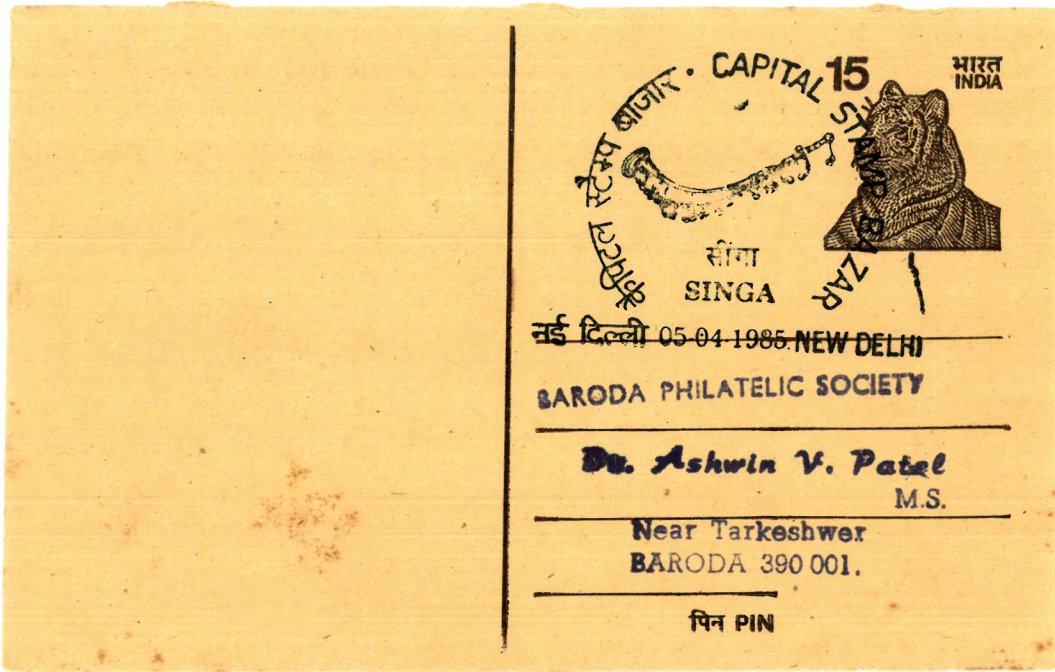 कैपिटल स्टैम्प बाजार . CAPITAL STAMP BAZAR
15
भारत
INDIA
सींगा
SINGA
नई दिल्ली 05-04-1985 NEW DELHI
BARODA PHILATELIC SOCIETY
Dr. Ashwin V. Patel
M.S.
Near Tarkeshwer
BARODA 390 001.
पिन PIN